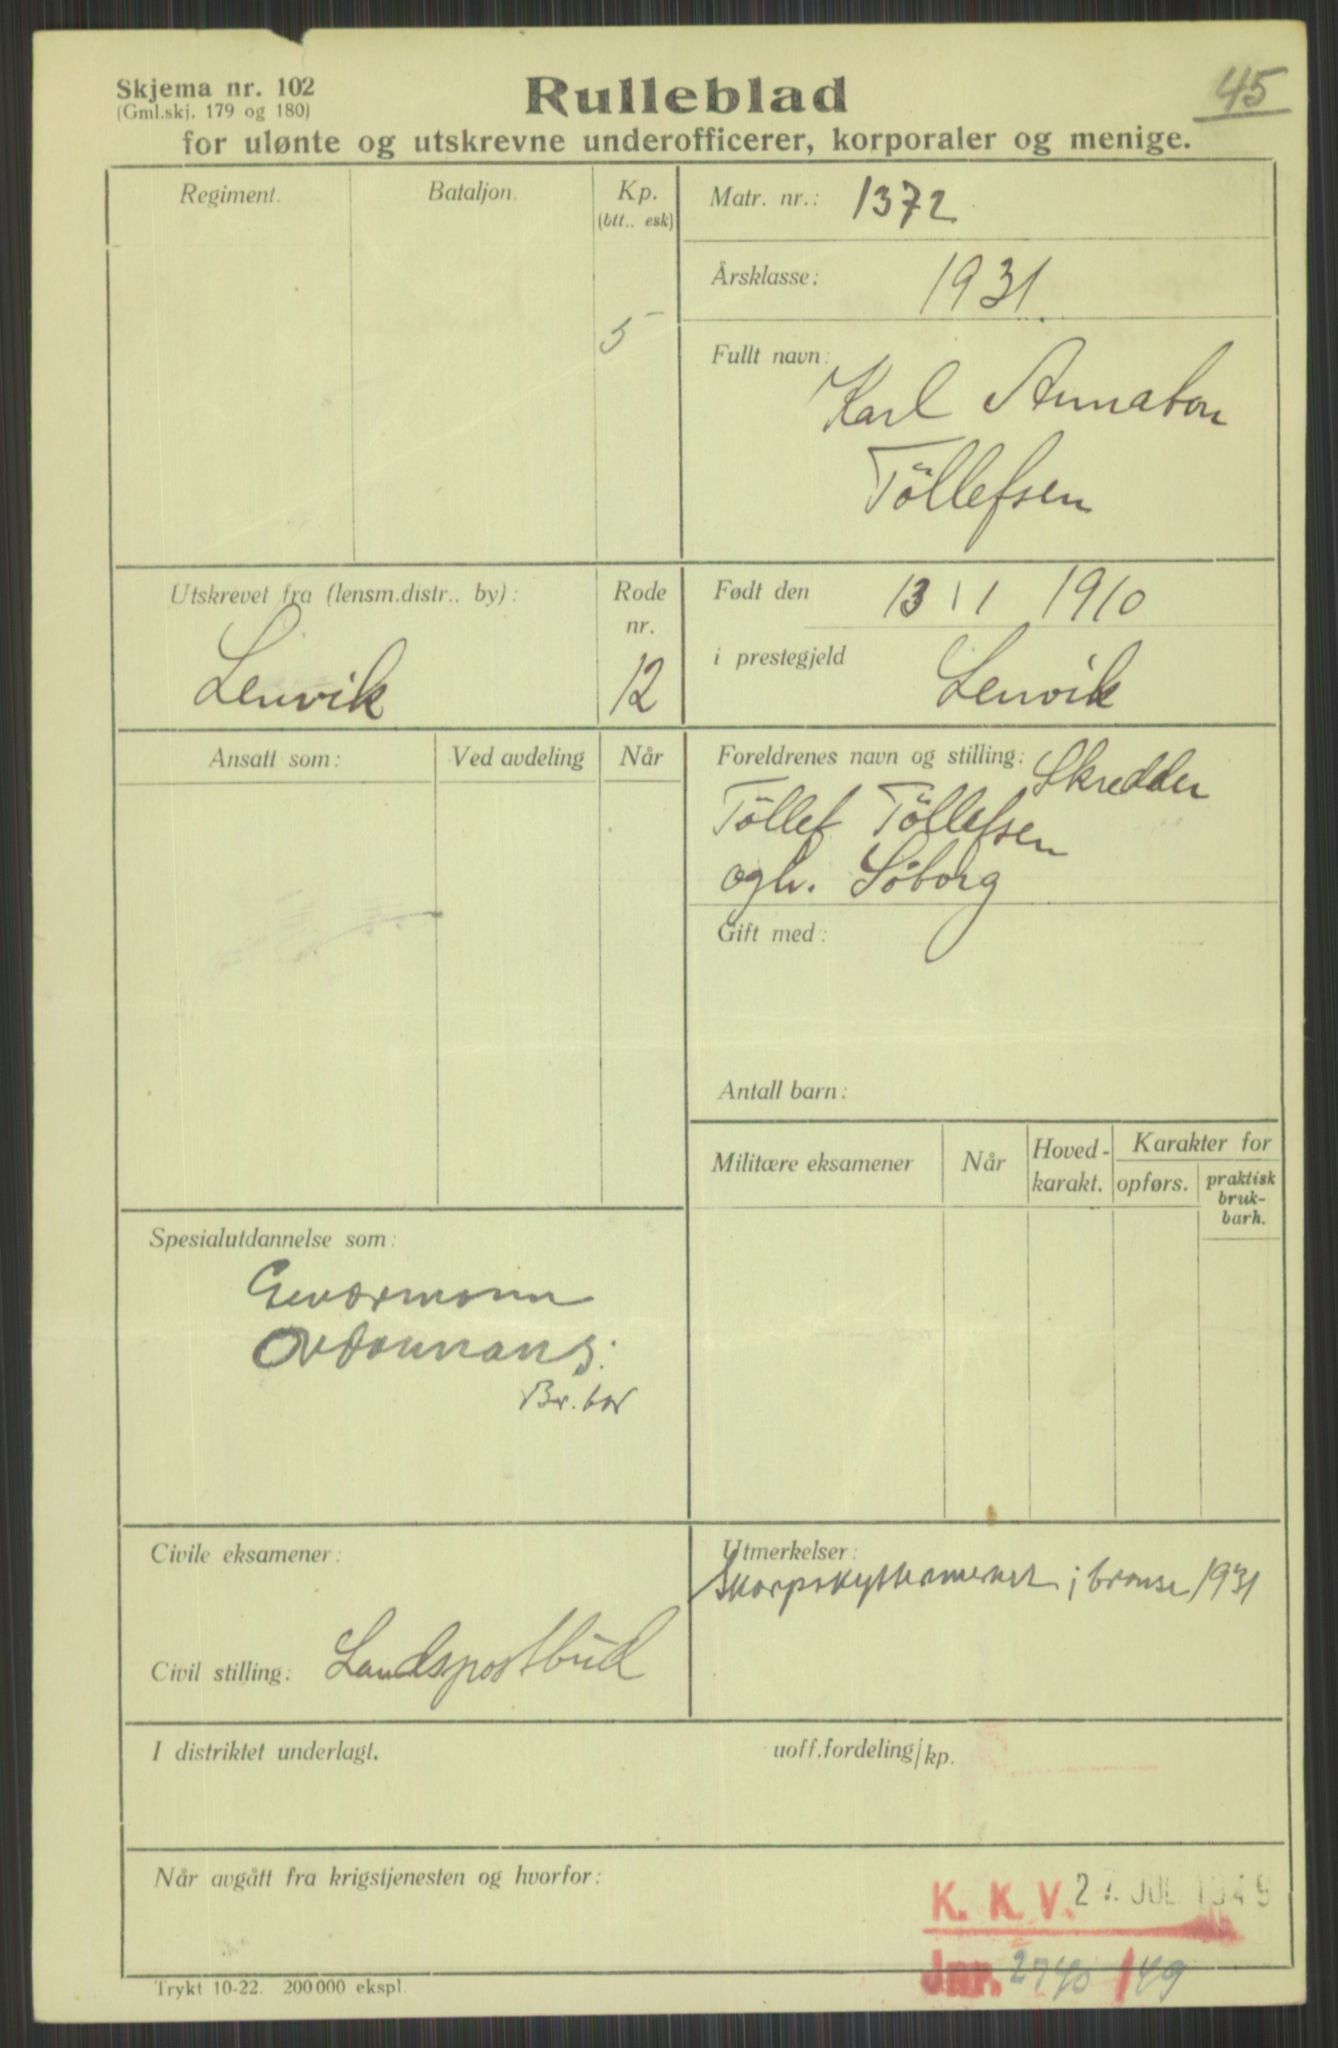 Skjema nr. 102
(Gml.skj. 179 og 180)
Rulleblad
45
for ulønte og utskrevne underofficerer, korporaler og menige.
Regiment.
Bataljon.
Kp.
(btt., esk)
5
Matr. nr.: 1372
Årsklasse: 1931
Fullt navn:
Karl
Töllefsen
Utskrevet fra (lensm.distr.. by):
Lenvik
Rode
nr.
12
Født den 13 1 1910
i prestegjeld Lenvik
Ansatt som:
Ved avdeling
Når
Foreldrenes navn og stilling: Skredder
Töllef Töllefsen
og h. Söborg
Gift med:
Antall barn:
Militære eksamener
Når
Hoved-
karakt.
Karakter for
opførs.
praktisk
bruk-
barh.
Spesialutdannelse som:
Geværmann
Ordonnans.
Civile eksamener:
Civil stilling: Landspostbud
Utmerkelser:
Skarpskyttermerket i bronse 1931
I distriktet underlagt.
uoff.fordeling/kp.
Når avgått fra krigstjenesten og hvorfor:
K. K. V. 27. JUL 1949
Jnr. 2740 /49
Trykt 10-22. 200 000 ekspl.